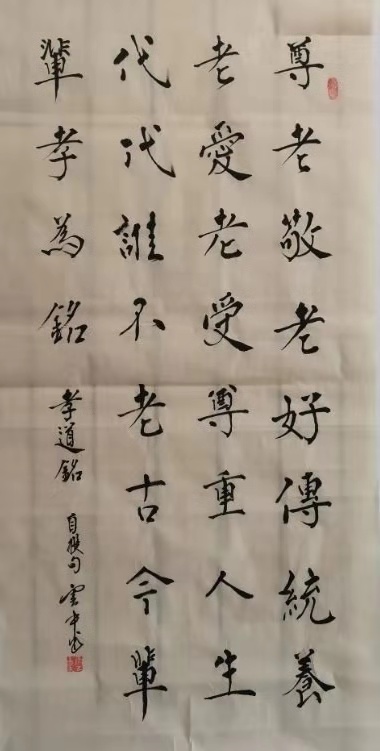 尊老敬老好傳統養
老愛老受尊重人生
代代誰不老古今輩
輩孝為銘
孝道銘
自撰句